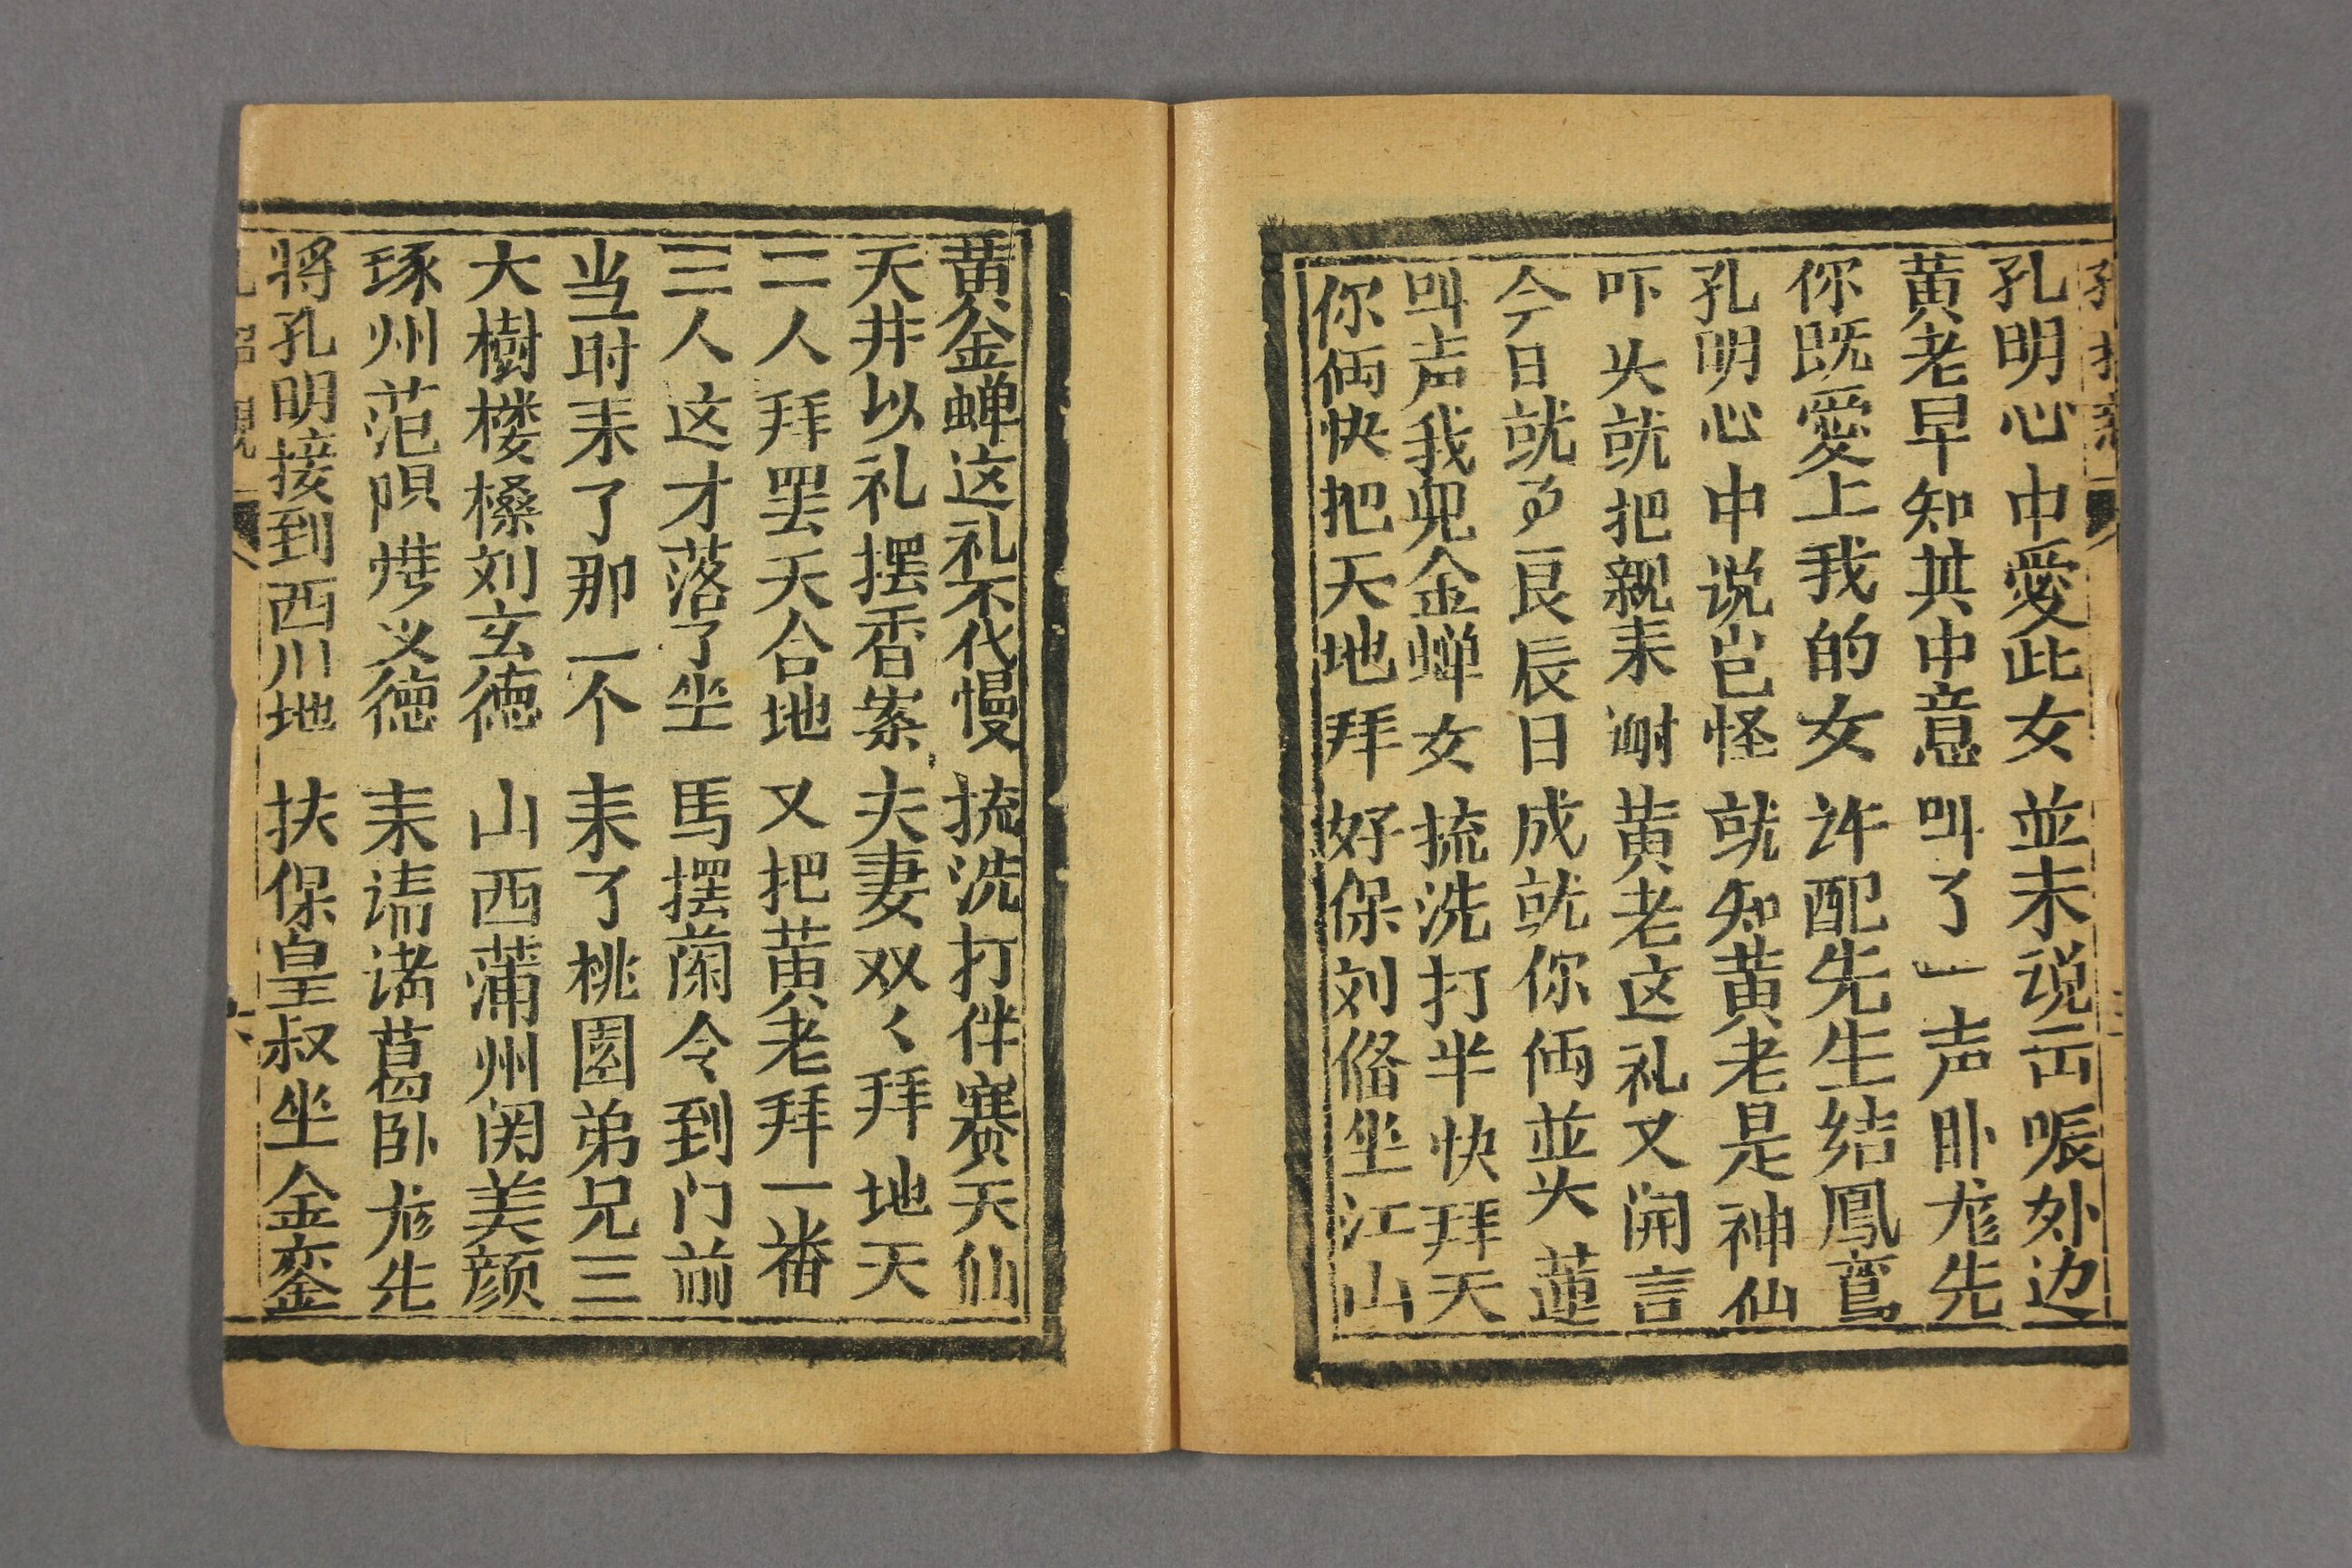 孔明心中愛此女 並未说云唳外边
黄老早知其中意 叫了一声卧龙先
你既愛上我的女 许配先生结鳳鸾
孔明心中说岂怪 就知黄老是神仙
吓头就把親耒谢 黄老这礼又闹言
今日就是良辰日 成就你俩並头蓮
叫声我兒金蝉女 梳洗打半快拜天
你俩快把天地拜 好保刘俻坐江山
黄金蝉这礼不代慢 梳洗打伴赛天仙
天井以礼摆香案 夫妻双〻拜地天
二人拜罢天合地 又把黄老拜一番
三人这才落了坐 馬摆蘭令到门前
当时耒了那一个 耒了桃園弟兄三
大樹楼桑刘玄德 山西蒲州関美颜
琢州范阳张义德 耒请诸葛卧龙先
将孔明接到西川地 扶保皇叔坐金銮